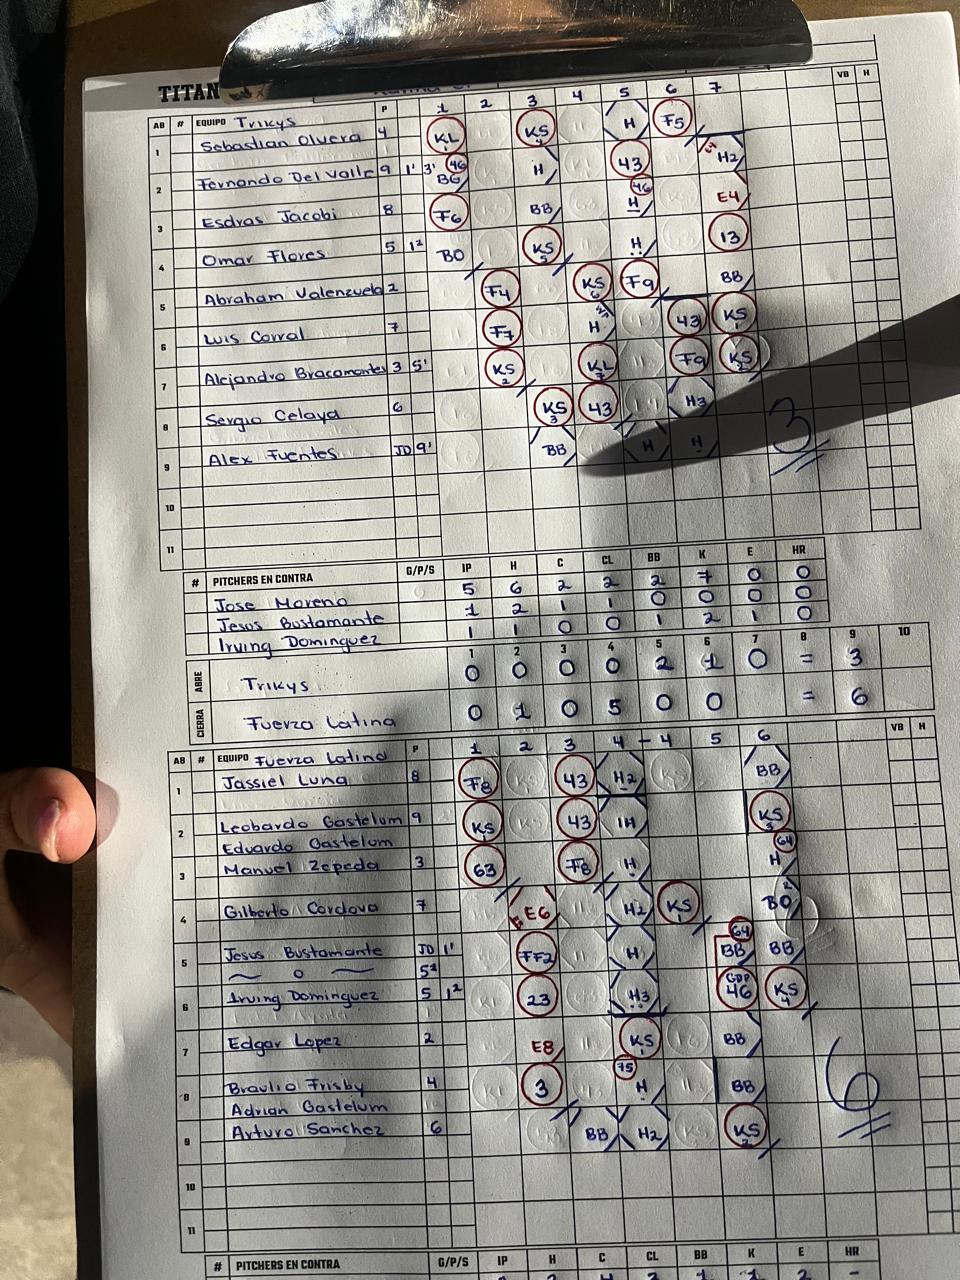 TITAN
AB # EQUIPO Trikys P 1 2 3 4 5 6 7 VB H
1 Sebastian Olvera 4 KL KS 4 H F5
2 Fernando Del Valle 9 1' 3' 46 BG H 43 H2
3 Esdras Jacobi 8 F6 BB 46 H E4
4 Omar Flores 5 1² BO KS 5 H 13
5 Abraham Valenzuela 2 F4 KS 6 F9 BB
6 Luis Corral 7 F7 H 43 KS 1
7 Alejandro Bracamontes 3 5' KS 2 KL 7 F9 KS 2
8 Sergio Celaya 6 KS 3 43 H3
9 Alex Fuentes JD 9' BB H H
3
10
11
# PITCHERS EN CONTRA G/P/S IP H C CL BB K E HR
Jose Moreno 5 6 2 2 2 7 0 0
Jesus Bustamante 1 2 1 1 0 0 0 0
Irving Dominguez 1 1 0 0 1 2 1 0
1 2 3 4 5 6 7 8 9 10
ABRE Trikys 0 0 0 0 2 1 0 = 3
CIERRA Fuerza Latina 0 1 0 5 0 0 = 6
AB # EQUIPO Fuerza Latina P 1 2 3 4 - 4 5 6 VB H
1 Jassiel Luna 8 F8 43 H2 BB
2 Leobardo Gastelum 9 KS 43 IH KS 3
Eduardo Gastelum
3 Manuel Zepeda 3 63 F8 H 64 H
4 Gilberto Cordova 7 E6 H2 KS 1 BO
5 Jesus Bustamante JD 1' FF2 H 64 BB BB
o 5²
6 Irving Dominguez 5 1² 23 H3 GDP 46 KS 4
7 Edgar Lopez 2 E8 KS BB
8 Braulio Frisby 4 3 75 H BB
Adrian Gastelum
9 Arturo Sanchez 6 BB H2 KS 2
6
10
11
# PITCHERS EN CONTRA G/P/S IP H C CL BB K E HR